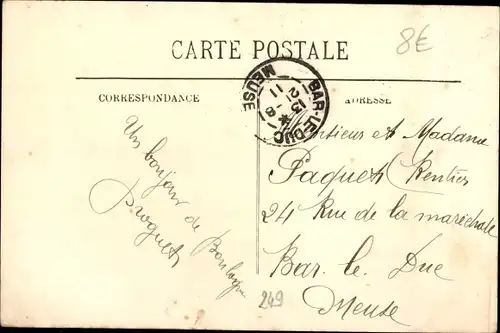 8€
CARTE POSTALE
BAR-LE-DUC
13 * 
21 -8
11
MEUSE
CORRESPONDANCE
ADRESSE
Un bonjour de Boulogne
Monsieur et Madame
Paquet Rentier
24 Rue de la maréchale
Bar. le. Duc
Meuse
249